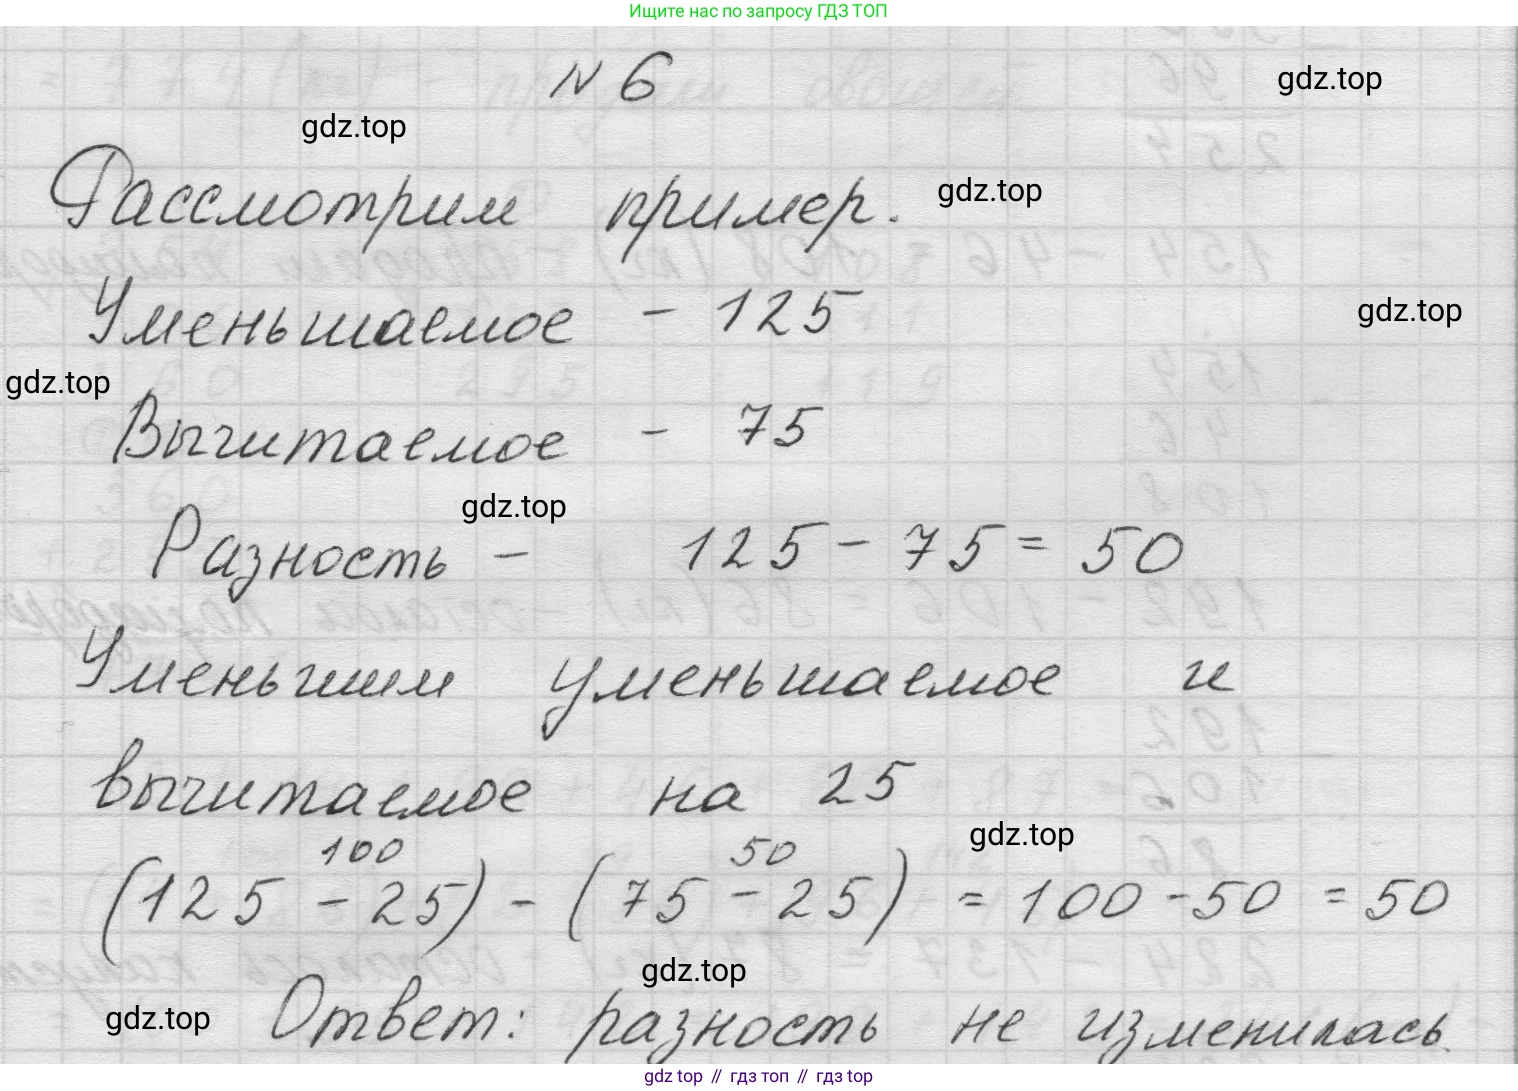 Ищите нас по запросу ГДЗ ТОП
N 6
gdz.top
gdz.top
Рассмотрим пример.
gdz.top
Уменьшаемое - 125
gdz.top
gdz.top
Вычитаемое - 75
gdz.top
Разность - 125 - 75 = 50
Уменьшим уменьшаемое и
вычитаемое на 25
gdz.top
100 50
(125 - 25) - (75 - 25) = 100 - 50 = 50
gdz.top
gdz.top
Ответ: разность не изменилась.
gdz top // гдз топ // гдз top